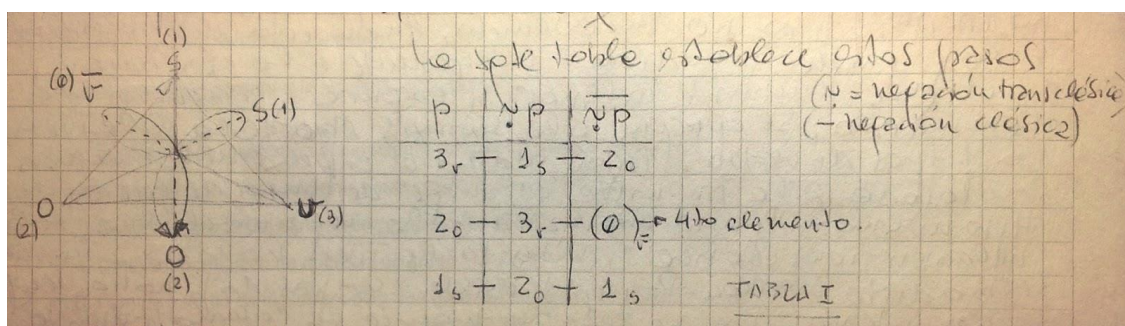 (1)
S
(0) v̅
S(1)
O
(2)
v(3)
O
(2)
La tabla establece estos pasos
(ṇ̃ = negación transclásica)
(— negación clásica)
p | ṇ̃ p | ṇ̃ p̅
3ᵥ — 1ₛ — 2₀
2₀ — 3ᵥ — (0)v̅ → 4to elemento.
1ₛ — 2₀ — 1ₛ
TABLA I